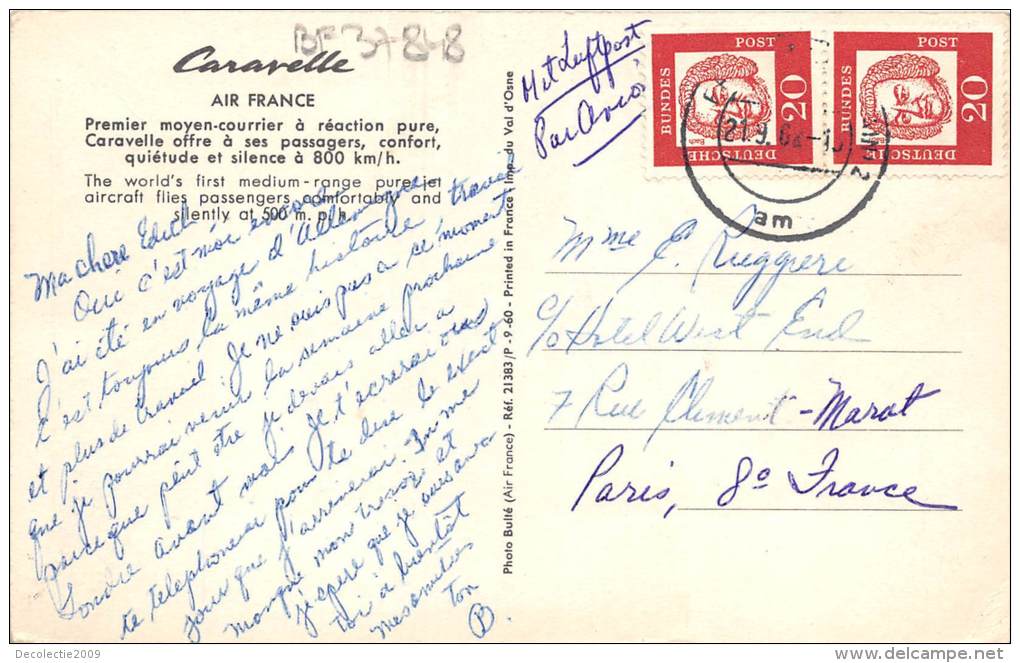 BF 37848
Caravelle
AIR FRANCE
Premier moyen-courrier à réaction pure,
Caravelle offre à ses passagers, confort,
quiétude et silence à 800 km/h.
The world's first medium-range pure jet
aircraft flies passengers comfortably and
silently at 500 m. p. h.
Ma chere Edith
Oui c'est moi encore
J'ai été en voyage d'Allemagne
C'est toujours la même histoire travail
et plus de travail. Je ne suis pas a ce moment
que je pourrai venir la semaine prochaine
parce que peut être je devais aller a
Londre avant mais je t'écrirai ou
te telephonerai pour te dire le exact
jour que j'arriverai. Tu me
manque mon tresor et
j'espere que je suis avec
toi a bientôt
mes amities
ton
B.
Photo Bulté (Air France) - Réf. 21383/P - 9-60 - Printed in France Imp. du Val d'Osne
Mit Luftpost
Par Avion
DEUTSCHE BUNDES POST 20
Bach
DEUTSCHE BUNDES POST 20
21.9.62
am
Mme E. Ruggieri
c/o Hotel West End
7 Rue Clement-Marot
Paris, 8e France
Decolectie2009